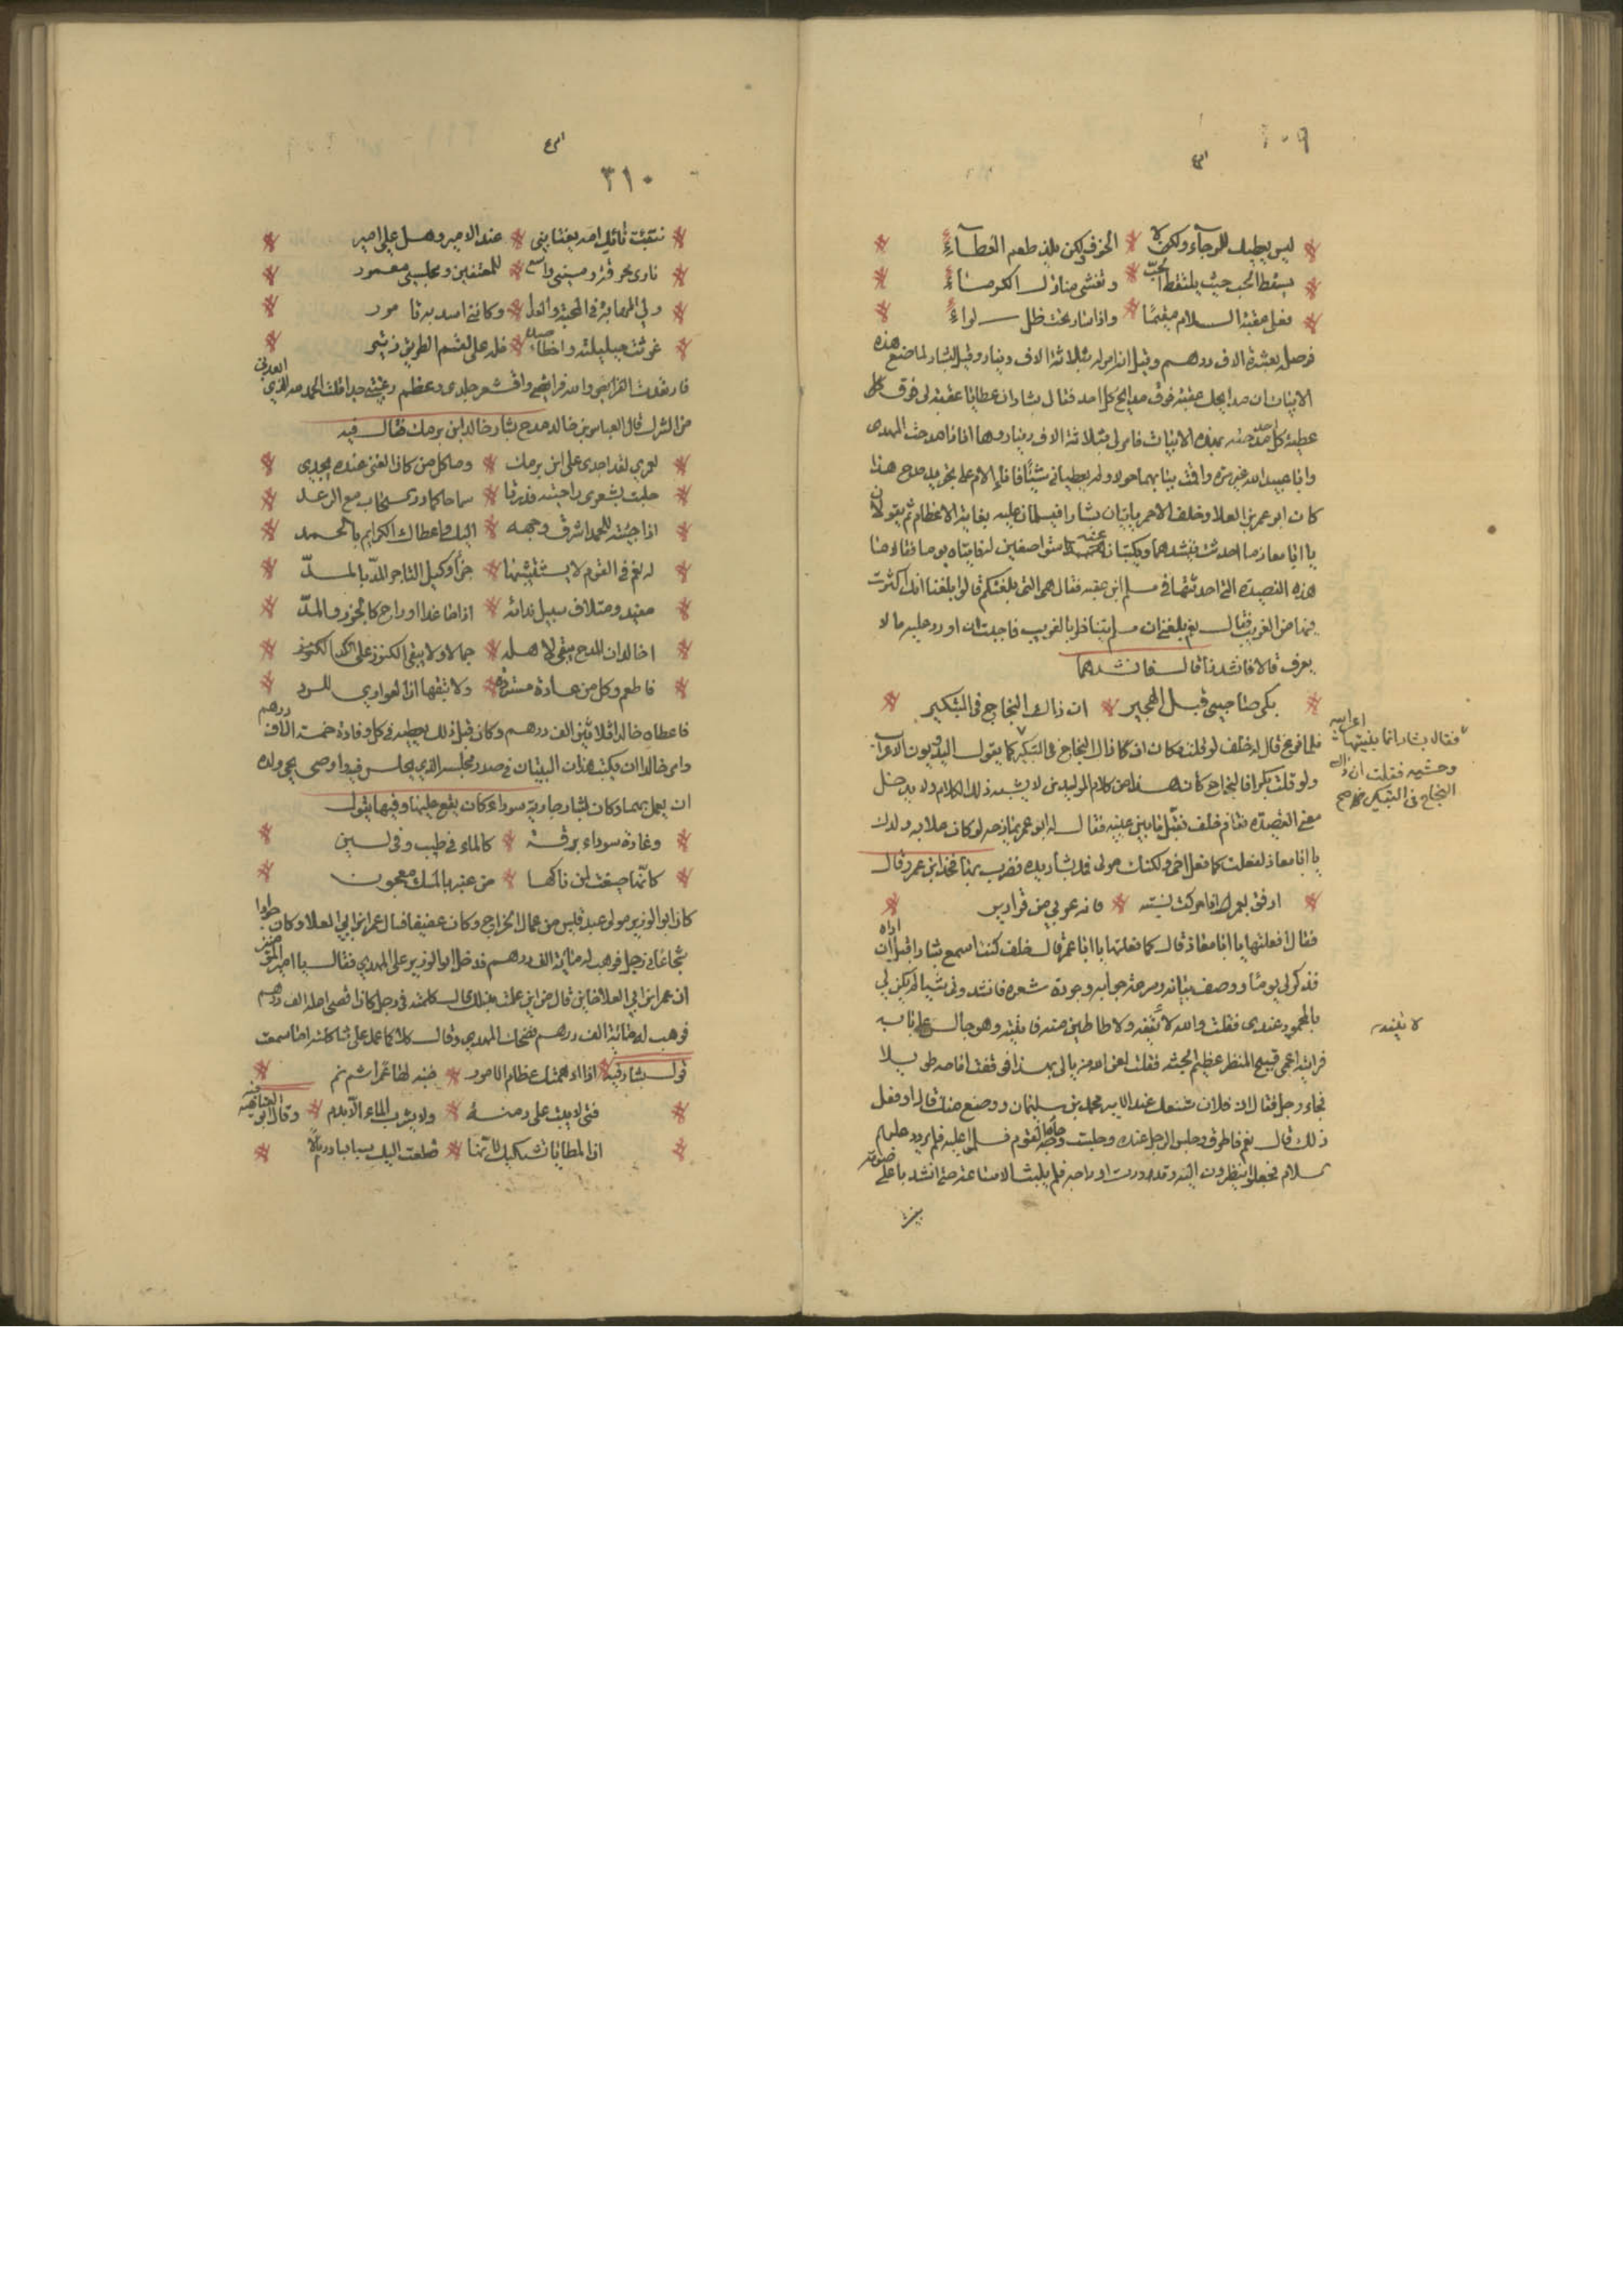 ٣٠٩
ليس يعطيك للرجاء ولا * الخوف ولكن يلذ طعم العطاء
يسقط الحب حيث يلتقط الحب * وتغشى منازل الكرماء
فعلى عقبة السلام مقيما * واذا سار تحت ظل لواء
فوصله بعشرة الاف درهم وقيل انه امر له بثلاثة الاف دينار وقيل لبشار لما صنع هذه
الابيات ان مدايحك عقبة فوق مدايح كل احد فقال بشار ان عطاياه عقبة لى فوق كل
عطية كل احد مدحته بهذه الابيات فامر لى بثلاثة الاف دينار وها انا ذا مدحت المهدى
وابا عبيد الله غير مرة واقمت ببابهما حولا ولم يعطيانى شيئا افا الام على تجويد مدح هذا
كان ابو عمرو بن العلا وخلف الاحمر ياتيان بشارا فيسلمان عليه بغاية الاعظام ثم يقولان
يا ابا معاذ ما احدثت فينشدهما ويكتبان عنه متواضعين له فاتياه يوما فقالا ما
هذه القصيدة التى احدثتها فى سلم ابن قتيبة فقال هى التى بلغتكم قالوا بلغنا انك اكثرت
فيها من الغريب فقال نعم بلغنى ان سلم يتباظر بالغريب فاحببت ان اورد عليه ما لا
يعرف قالا فانشدنا قال فانشدهما
بكرا صاحبى قبل الهجير * ان ذاك النجاح فى التبكير
فلما فرغ قال له خلف لو قلت مكان ان ذاك النجاح فى التبكير كما يقول البدويون الاعراب
ولو قلت بكرا فالنجاح كان هذا من كلام المولدين لا يشبه ذلك الكلام ولا يدخل
معنى القصيدة فقام خلف فقبل ما بين عينيه فقال له ابو عمرو
فقال بشار انما بنيتها اعرابية
وحشية فقلت ان ذاك
النجاح فى التبكير صح
يا ابا معاذ لفعلت كما فعل اخى ولكنك مولى فمد بشار يده فضرب بها فخذ ابن عمرو وقال
ارفق بعمرو اذا حركت نسبته * فانه عربى من قوارير
فقال افعلتها يا ابا معاذ قال كما فعلتها يا ابا عمرو قال خلف كنت اسمع بشارا قبل ان اراه
فذكر لى يوما ووصف بيانه وسرعة جوابه وجودة شعره فانشدونى شيئا لم يكن لى
بالمحمود عندى فقلت والله لاتينه ولا طاطين منه فاتيته وهو جالس على بابه
لاتينه
فرايته اعمى قبيح المنظر عظيم الجثة فقلت لعن الله من يبالى بهذا فوقفت اتامله طويلا
فجاء رجل فقال ان فلان شنعك عند الامير محمد بن سليمان ووضع منك قال او فعل
ذلك قال نعم فاطرق وجلس الرجل عنده وجلست وجاء القوم فسلموا عليه فلم يرد عليهم
سلام فجعلوا ينظرون اليه وقد درت اوداجه فلم يلبث الا ساعة حتى انشد باعلى صوته
٣١٠
نبئت نائك امه يغتابنى * عند الامير وهل على امير
نارى محرقة وبيتى واسع * للمعتفين ومجلسى معمور
ولى المهابة فى المحبة والعدى * وكاننى اسد به تامور
غرثت حليلته واخطاه صيده * فله على لقم الطريق زئير
فارتعدت الفرائص والله فرايصى واقشعر جلدى وعظم فى عينى جدا قلت الحمد لله الذى ابعدنى
من الشرك قال العباس بن خالد مدح بشار خالد ابن برمك فقال فيه
لعمرى لقد اجدى على ابن برمك * وما كل من كان الغنى عنده يجدى
حلبت بشعرى راحتيه فدرتا * سماحا كما در السحاب مع الرعد
اذا جئته للحمد اشرق وجهه * اليك واعطاك الكرايم بالحمد
له نعم فى القوم لا يستثيبها * جزاء وكيل التاجر المد بالمد
مفيد ومتلاف سبيل تراثه * اذا ما غدا او راح كالجزر والمد
اخالد ان المدح يبقى لاهله * جمالا ولا يبقى الكنوز على الكد
فاطعم وكل من عارة مستردة * ولا تبقها ان العوارى للرد
فاعطاه خالد ثلاثين الف درهم وكان قبل ذلك يعطيه فى كل وفادة خمسة الاف درهم
وامر خالد ان يكتب هذان البيتان فى صدر مجلسه الذى يجلس فيه واوصى يحيى ولده
ان يعمل بهما وكان لبشار جارية سوداء كان يقع عليها وفيها يقول
وغادة سوداء براقة * كالماء فى طيب وفى لين
كانها صيغت لمن ناكها * من عنبر بالمسك معجون
كان ابو الوزير مولى عبد قيس من عمال الخراج وكان عفيفا فسال عمر ابن ابى العلا وكان جوادا
شجاعا فى رجل فوهب له مائة الف درهم فدخل ابو الوزير على المهدى فقال يا امير المؤمنين
ان عمر ابن ابى العلا خاين قال من اين علمت بذلك قال كلمته فى رجل كان اقصى امله الف درهم
فوهب له مائة الف درهم فضحك المهدى وقال كلا كل يعمل على شاكلته اما سمعت
قول بشار فيه * اذا دهمتك عظام الامور * فنبه لها عمرا ثم نم
فتى لا يبيت على دمنة * ولا يشرب الماء الا بدم * وقال ابو العتاهية فيه
ان المطايا تشتكيك لانها * قطعت اليك سباسبا ورمالا